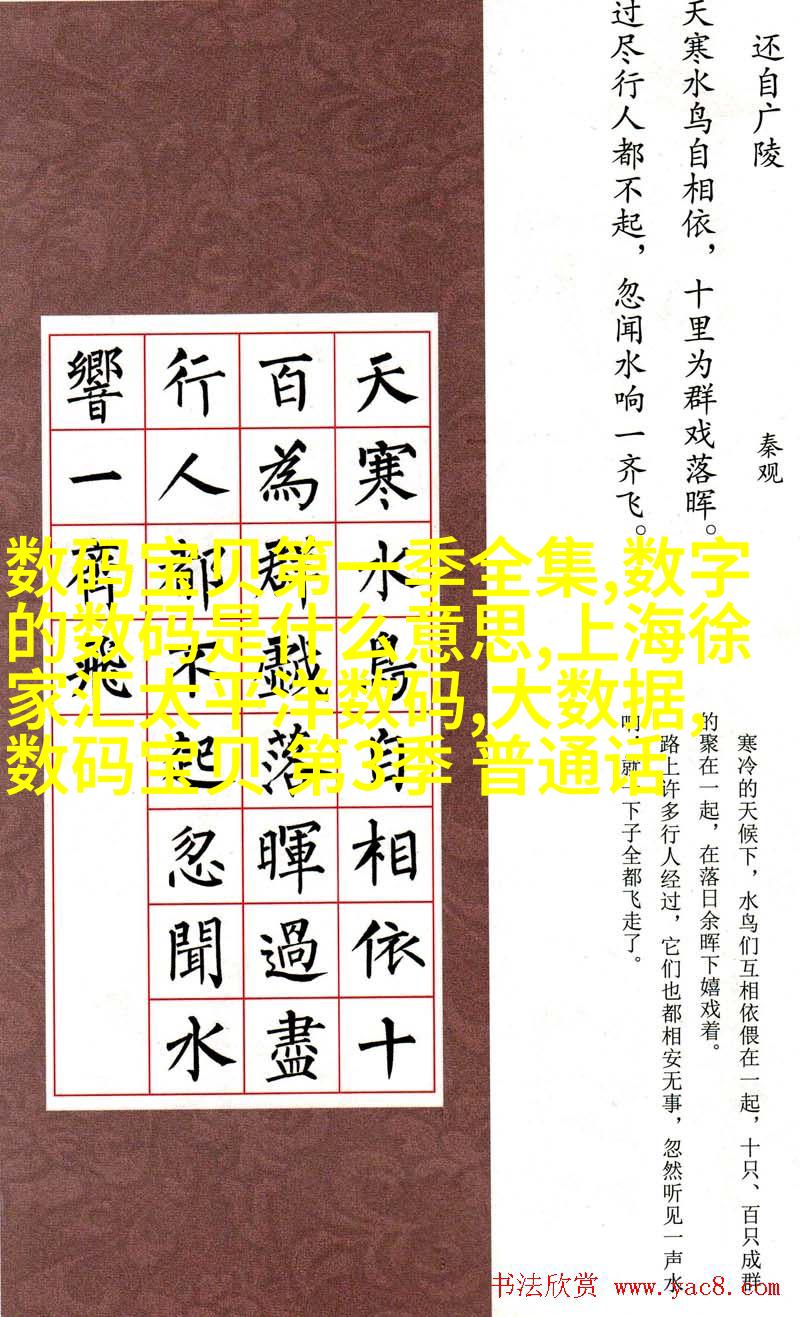 还自广陵
秦观
天寒水鸟自相依，十里为群戏落晖。
过尽行人都不起，忽闻水响一齐飞。
天寒水鳥自相依十
百為群戲落暉過盡
行人都不起忽聞水
響一齊飛
数码宝贝第一季全集,数字
的数码是什么意思,上海徐
家汇太平洋数码,大数据,
数码宝贝 第3季 普通话
寒冷的天候下，水鸟们互相依偎在一起，十只、百只成群
的聚在一起，在落日余晖下嬉戏着。
路上许多行人经过，它们也都相安无事，忽然听见一声水
响，就一下子全都飞走了。
书法欣赏 www.yac8.com